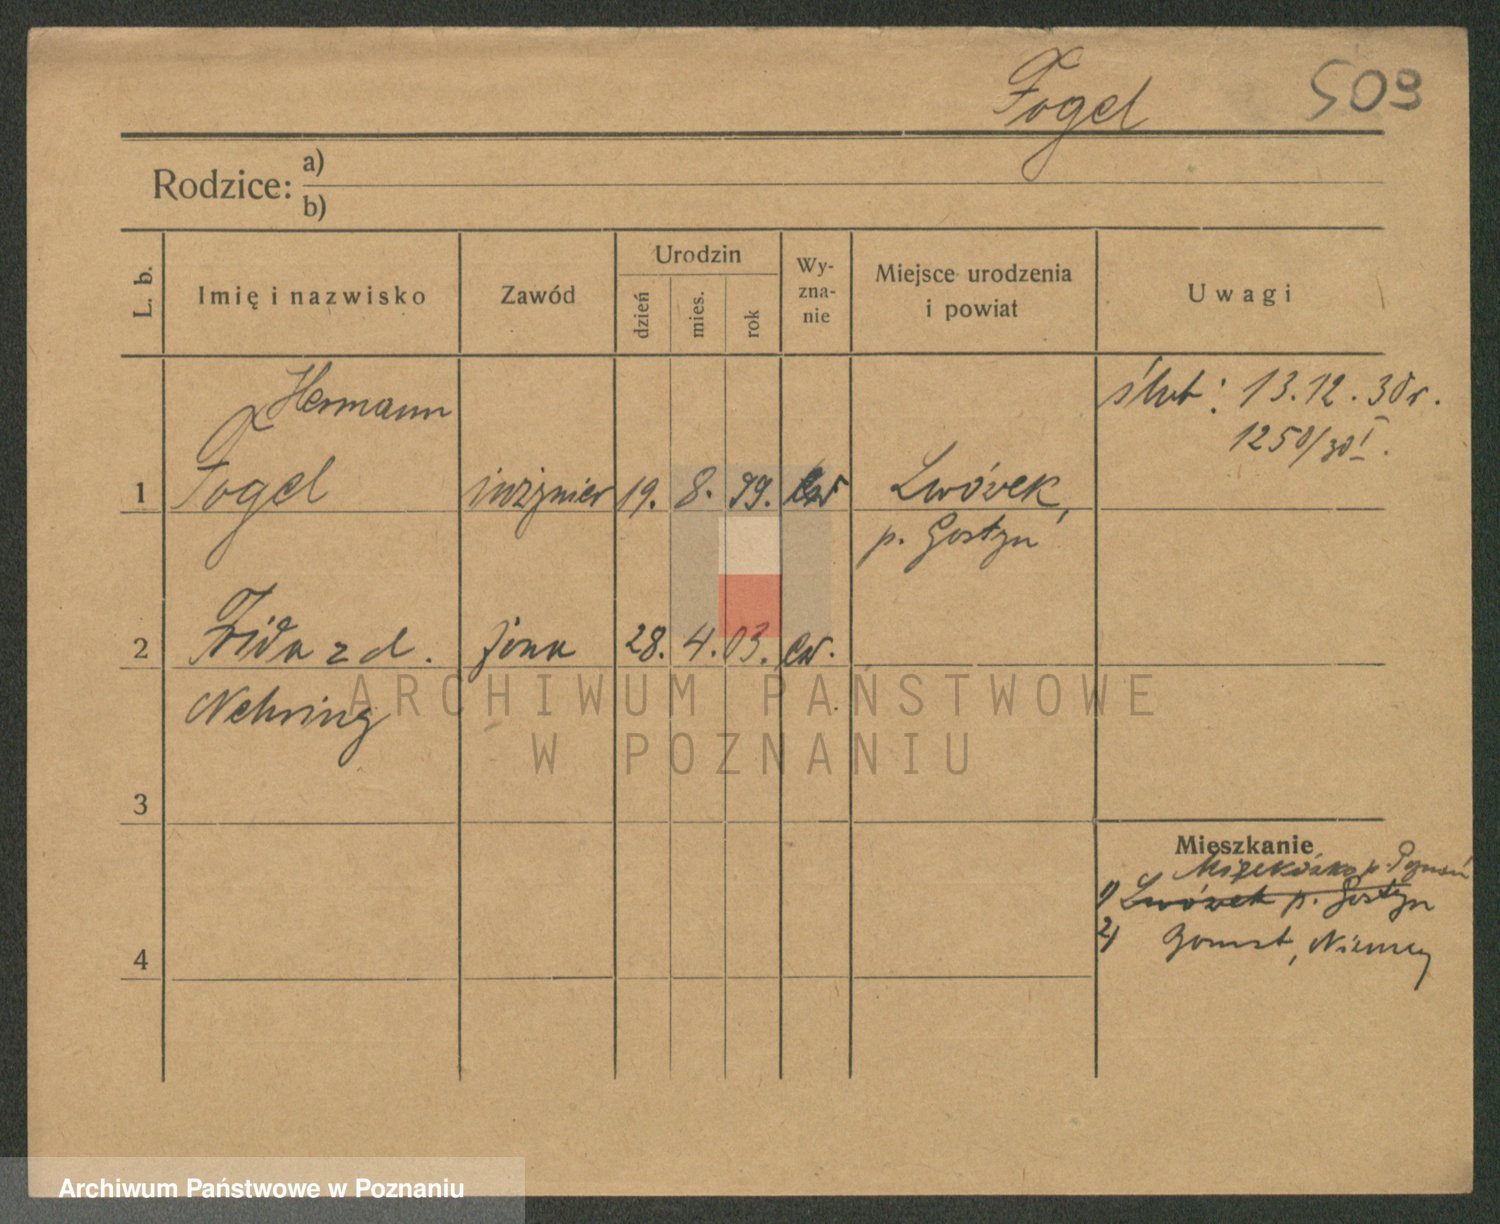 Fogel 509
Rodzice: a)
b)
L. b. Imię i nazwisko Zawód Urodzin dzień mies. rok Wyznanie Miejsce urodzenia i powiat Uwagi
Hermann ślub: 13.12.30r.
1250/30 I.
1 Fogel inżynier 19. 8. 99. ew Lwówek,
p. Gostyń
2 Frida z d. żona 28. 4. 03. ew.
Nehring
ARCHIWUM PAŃSTWOWE
W POZNANIU
3
Mieszkanie
p. Poznań
1) Lwówek p. Gostyn
2) Niemcy
4
Archiwum Państwowe w Poznaniu